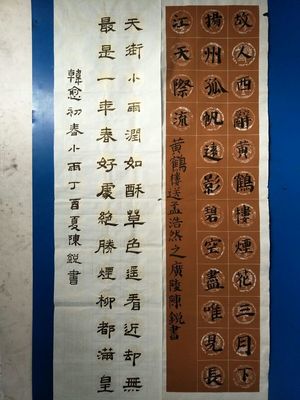 故人西辭黃鶴樓煙花三月下
揚州孤帆遠影碧空盡唯見長
江天際流
黃鶴樓送孟浩然之廣陵陳銳書
天街小雨潤如酥草色遥看近却無
最是一年春好處絶勝煙柳都滿皇
韓愈初春小雨丁酉夏陳銳書